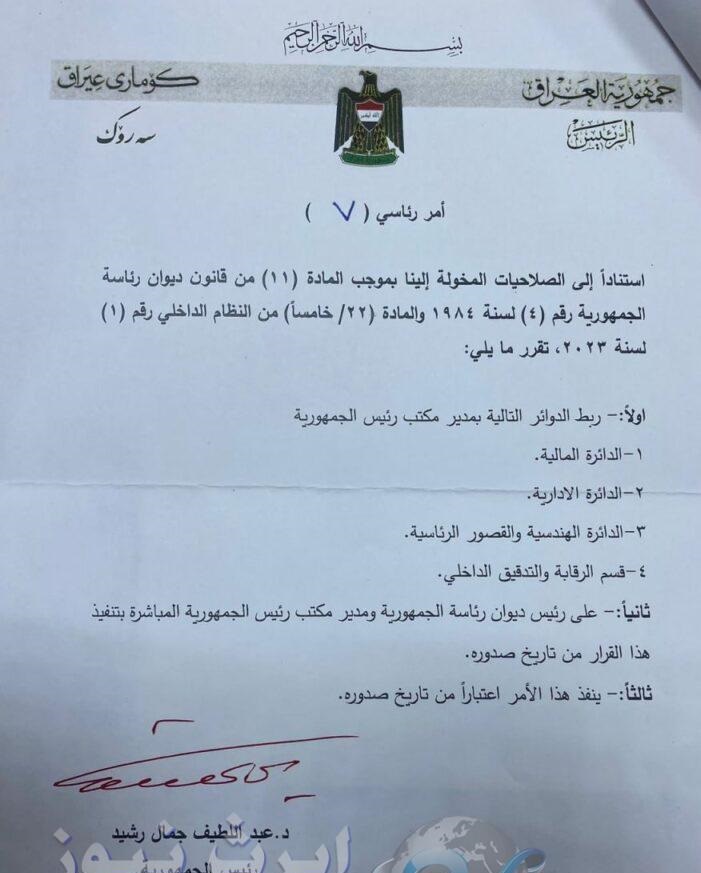 بسم الله الرحمن الرحيم
جمهورية العراق
كۆماری عێراق
الرئيس
سه رۆك
الله أكبر
أمر رئاسي ( ٧ )
استناداً إلى الصلاحيات المخولة إلينا بموجب المادة (١١) من قانون ديوان رئاسة
الجمهورية رقم (٤) لسنة ١٩٨٤ والمادة (٢٢/ خامساً) من النظام الداخلي رقم (١)
لسنة ٢٠٢٣، تقرر ما يلي:
اولاً:- ربط الدوائر التالية بمدير مكتب رئيس الجمهورية
١-الدائرة المالية.
٢-الدائرة الادارية.
٣-الدائرة الهندسية والقصور الرئاسية.
٤-قسم الرقابة والتدقيق الداخلي.
ثانياً:- على رئيس ديوان رئاسة الجمهورية ومدير مكتب رئيس الجمهورية المباشرة بتنفيذ
هذا القرار من تاريخ صدوره.
ثالثاً:- ينفذ هذا الأمر اعتباراً من تاريخ صدوره.
د.عبد اللطيف جمال رشيد
رئيس الجمهورية
إيرث نيوز